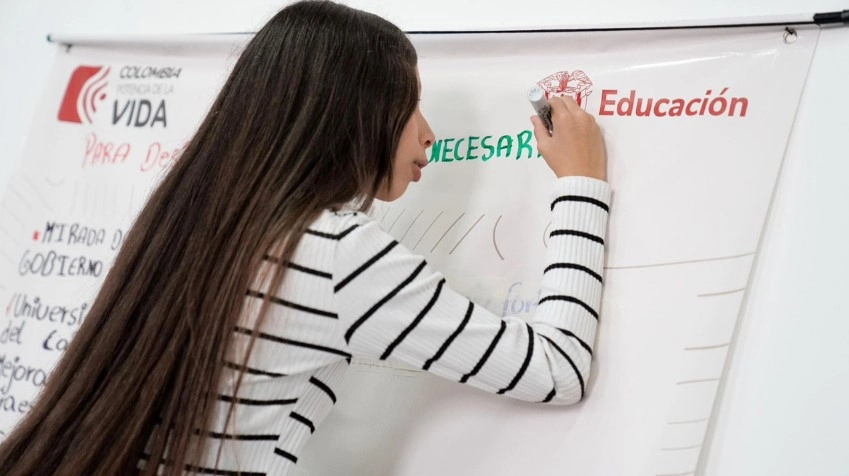 COLOMBIA
POTENCIA DE LA
VIDA
Educación
PARA
NECESARI
* MIRADA D
GOBIERNO
(Universi
del Ca
Mejora